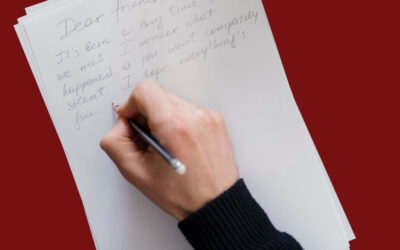 Dear friend,
It's been a long time since
we met. I wonder what
happened as you went completely
silent. I hope everything's
fine